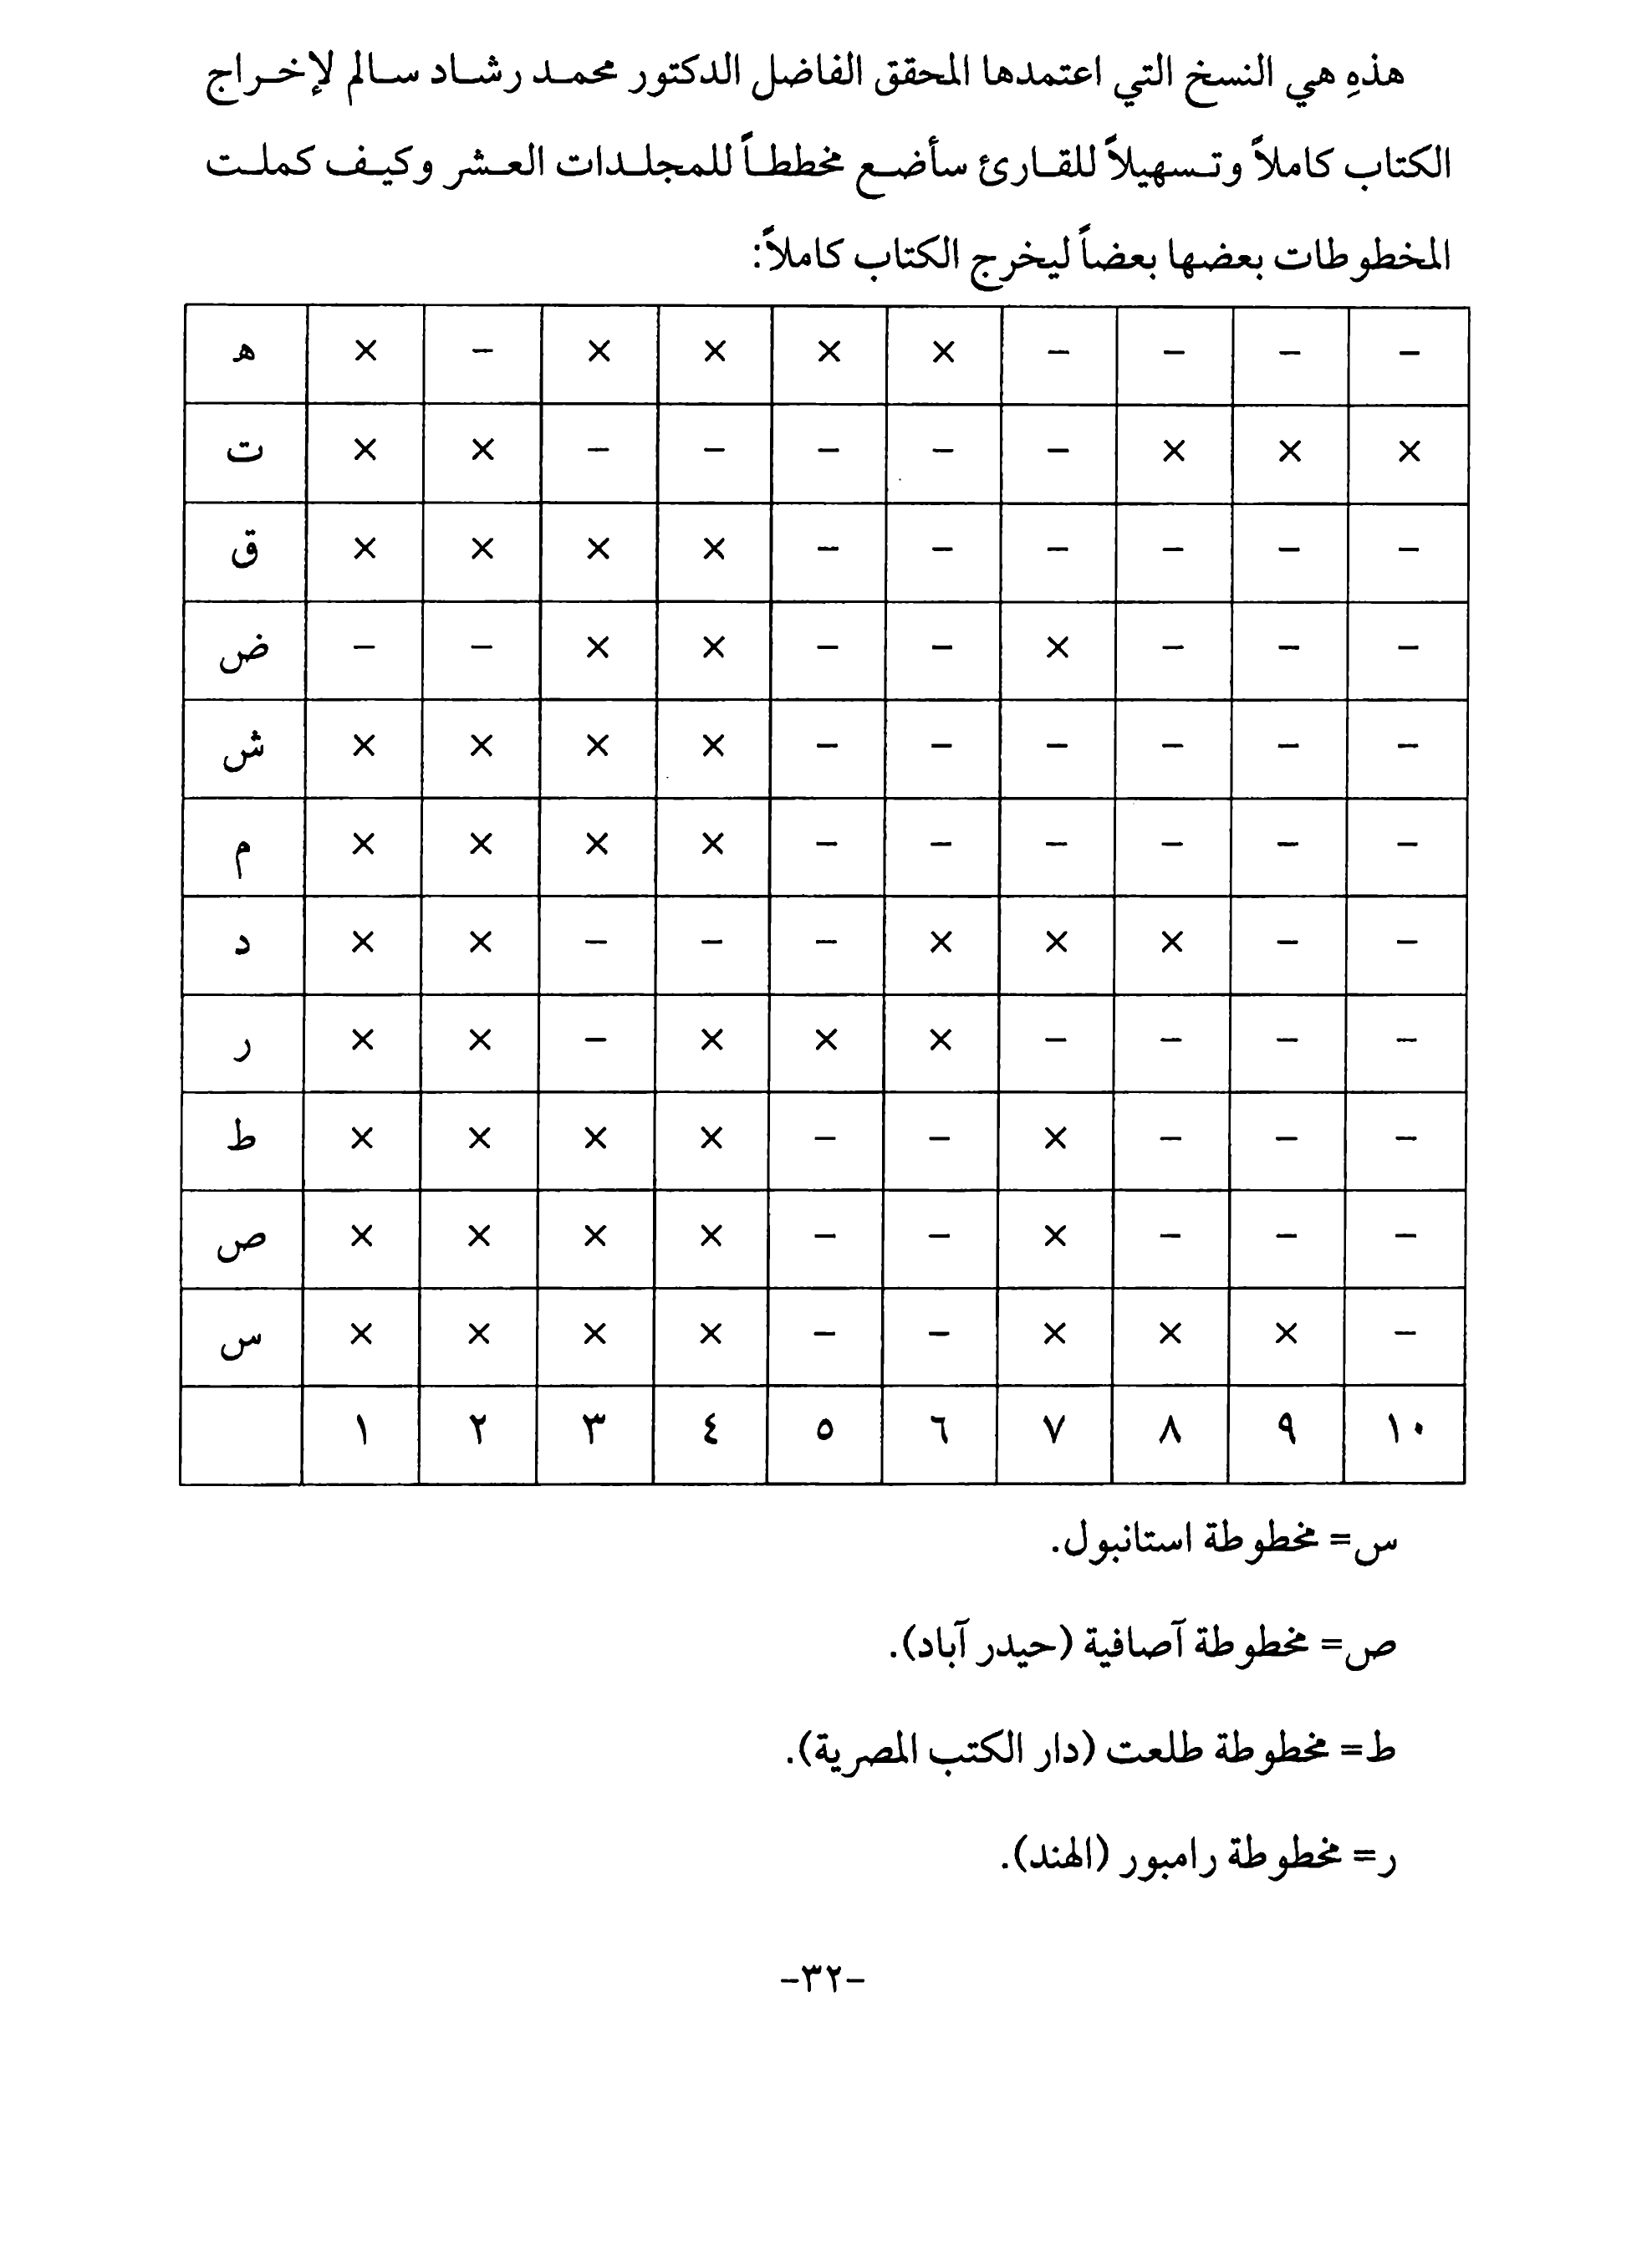 هذهِ هي النسخ التي اعتمدها المحقق الفاضل الدكتور محمد رشاد سالم لإخراج
الكتاب كاملاً وتسهيلاً للقارئ سأضع مخططاً للمجلدات العشر وكيف كملت
المخطوطات بعضها بعضاً ليخرج الكتاب كاملاً:
ه × – × × × × – – – –
ت × × – – – – – × × ×
ق × × × × – – – – – –
ض – – × × – – × – – –
ش × × × × – – – – – –
م × × × × – – – – – –
د × × – – – × × × – –
ر × × – × × × – – – –
ط × × × × – – × – – –
ص × × × × – – × – – –
س × × × × – – × × × –
١ ٢ ٣ ٤ ٥ ٦ ٧ ٨ ٩ ١٠
س= مخطوطة استانبول.
ص= مخطوطة آصافية (حيدر آباد).
ط= مخطوطة طلعت (دار الكتب المصرية).
ر= مخطوطة رامبور (الهند).
-٣٢-